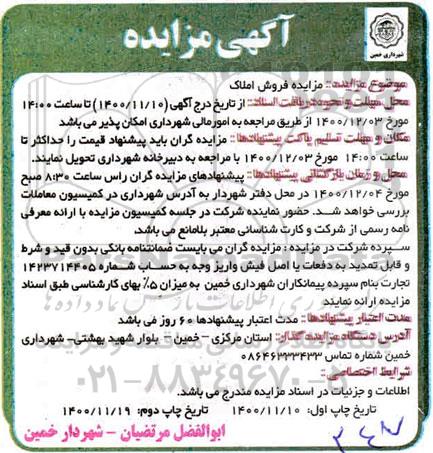 آگهی مزایده
شهرداری خمین
موضوع مزایده: مزایده فروش املاک
محل مهلت و نحوه دریافت اسناد: از تاریخ درج آگهی (۱۴۰۰/۱۱/۱۰) تا ساعت ۱۴:۰۰
مورخ ۱۴۰۰/۱۲/۰۳ از طریق مراجعه به امور مالی شهرداری امکان پذیر می باشد
مکان و مهلت تسلیم پاکت پیشنهادها: مزایده گران باید پیشنهاد قیمت را حداکثر تا
ساعت ۱۴:۰۰ مورخ ۱۴۰۰/۱۲/۰۳ با مراجعه به دبیرخانه شهرداری تحویل نمایند.
محل و زمان بازگشائی پیشنهادها: پیشنهادهای مزایده گران راس ساعت ۸:۳۰ صبح
مورخ ۱۴۰۰/۱۲/۰۴ در محل دفتر شهردار به آدرس شهرداری در کمیسیون معاملات
بررسی خواهد شد. حضور نماینده شرکت در جلسه کمیسیون مزایده با ارائه معرفی
نامه رسمی از شرکت و کارت شناسائی معتبر بلامانع می باشد.
سپرده شرکت در مزایده: مزایده گران می بایست ضمانتنامه بانکی بدون قید و شرط
و قابل تمدید به دفعات یا اصل فیش واریز وجه به حساب شماره ۱۴۲۳۷۱۴۴۰۵
تجارت بنام سپرده پیمانکاران شهرداری خمین به میزان ۵٪ بهای کارشناسی طبق اسناد
مزایده ارائه نمایند
مدت اعتبار پیشنهادها: مدت اعتبار پیشنهادها ۶۰ روز می باشد
آدرس دستگاه مزایده گذار: استان مرکزی - خمین - بلوار شهید بهشتی- شهرداری
خمین شماره تماس ۰۸۶۴۶۳۳۳۴۳۳
شرایط اختصاصی:
اطلاعات و جزئیات در اسناد مزایده مندرج می باشد.
تاریخ چاپ اول: ۱۴۰۰/۱۱/۱۰ تاریخ چاپ دوم: ۱۴۰۰/۱۱/۱۹
ابوالفضل مرتضیان - شهردار خمین
ParsNamadData
۰۲۱-۸۸۳۴۹۶۷۰-۵